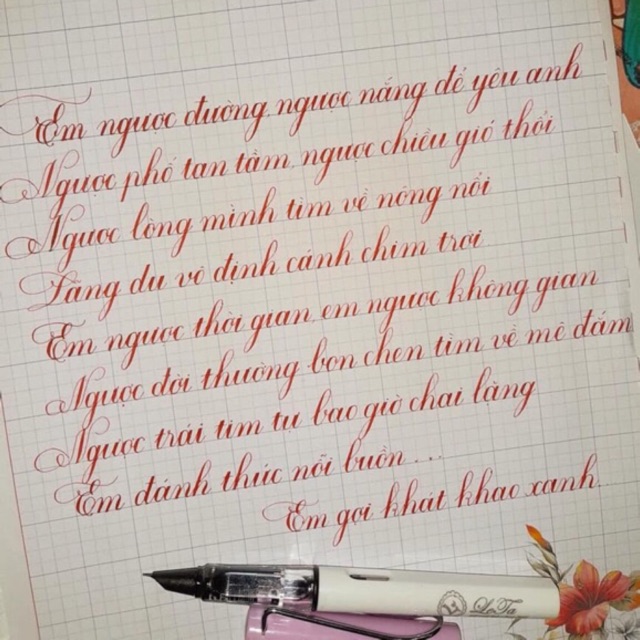 Em ngược đường, ngược nắng để yêu anh
Ngược phố tan tầm, ngược chiều gió thổi
Ngược lòng mình tìm về nông nổi
Lãng du vô định cánh chim trời
Em ngược thời gian, em ngược không gian
Ngược đời thường bon chen tìm về mê đắm
Ngược trái tim tự bao giờ chai lặng
Em đánh thức nỗi buồn...
Em gợi khát khao xanh
LeTa